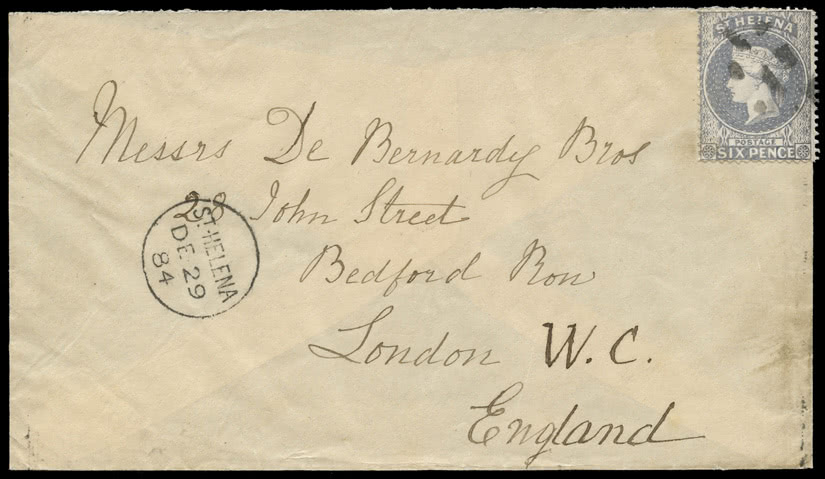 ST HELENA
POSTAGE
SIX PENCE
Messrs De Bernardy Bros
28 John Street
Bedford Row
London W.C.
England
ST. HELENA
DE 29
84